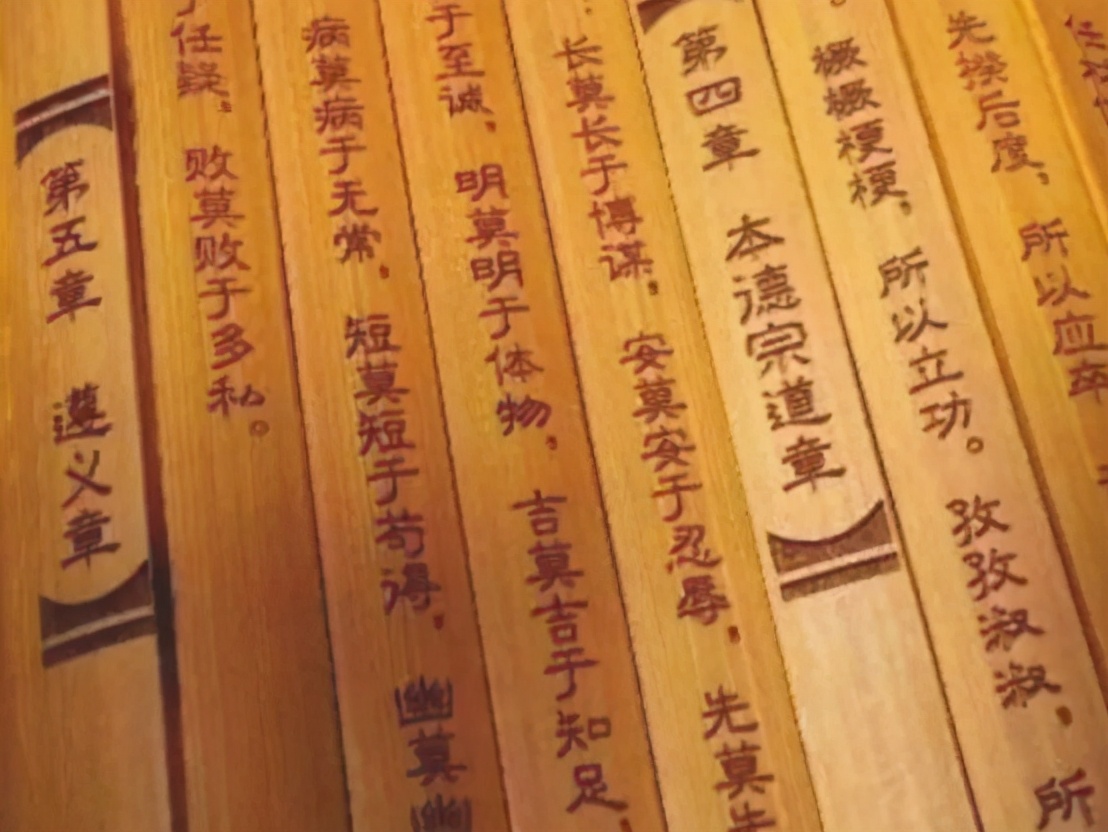 先揆后度，所以应卒
橛橛梗梗，所以立功。孜孜淑淑，所
第四章 本德宗道章
长莫长于博谋，安莫安于忍辱，先莫先
于至诚，明莫明于体物，吉莫吉于知足，
病莫病于无常，短莫短于苟得，幽莫幽
于任疑。败莫败于多私。
第五章 遵义章